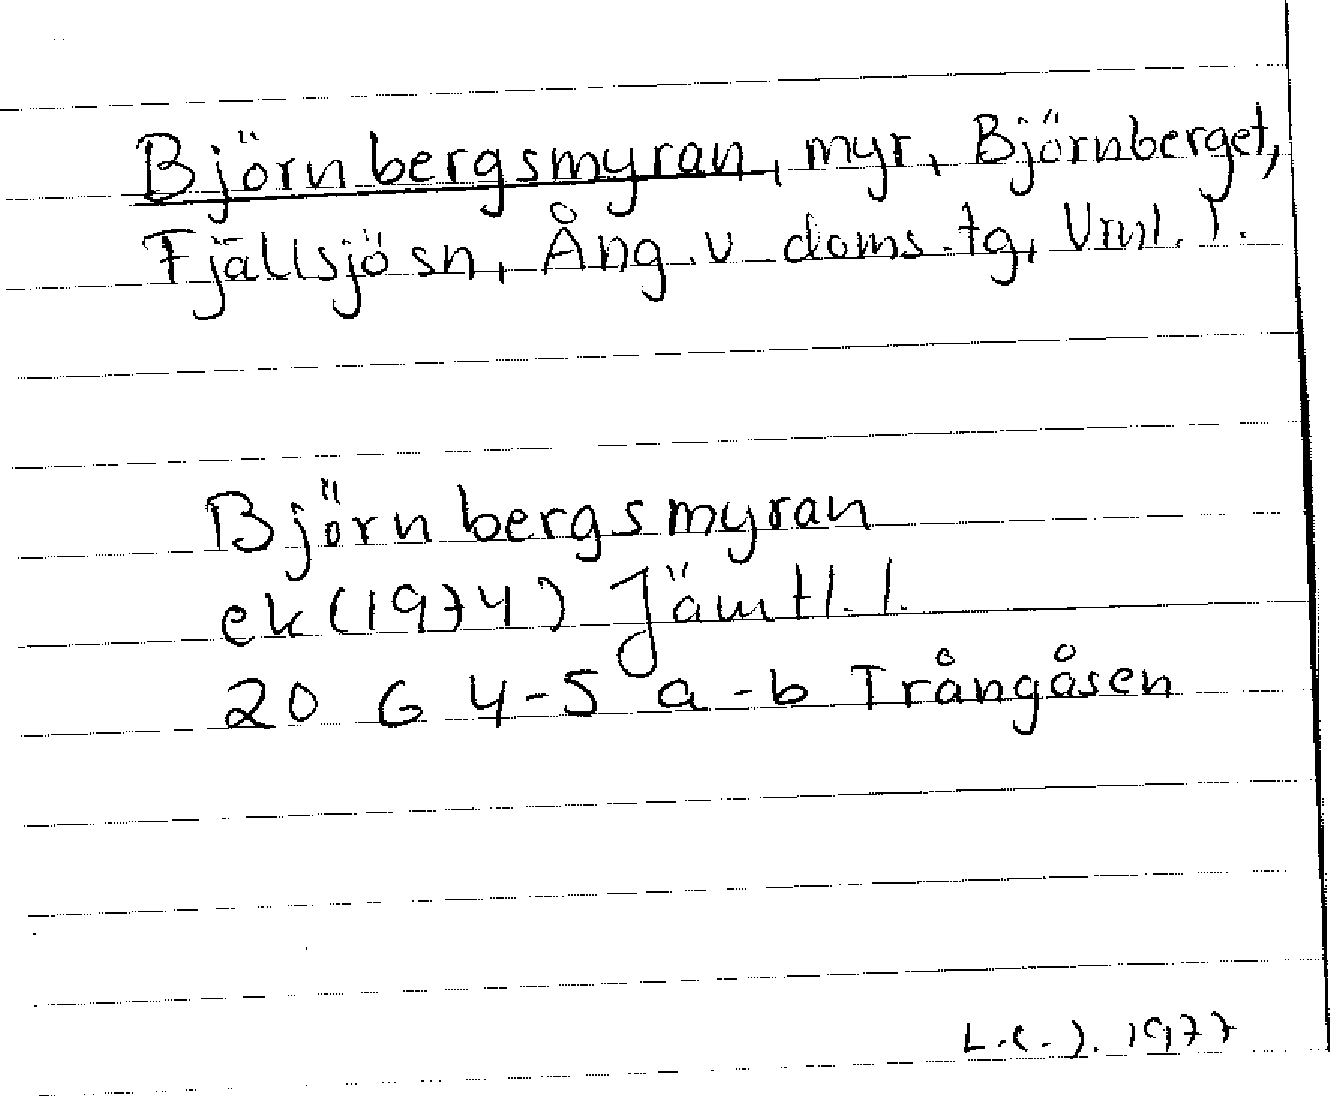 Björnbergsmyran, myr, Björnberget,
Fjällsjö sn, Ång. v. doms. tg, Vrnl. l.
Björnbergsmyran
ek (1974) Jämtl. l.
20 G 4-5 a-b Trångåsen
1977